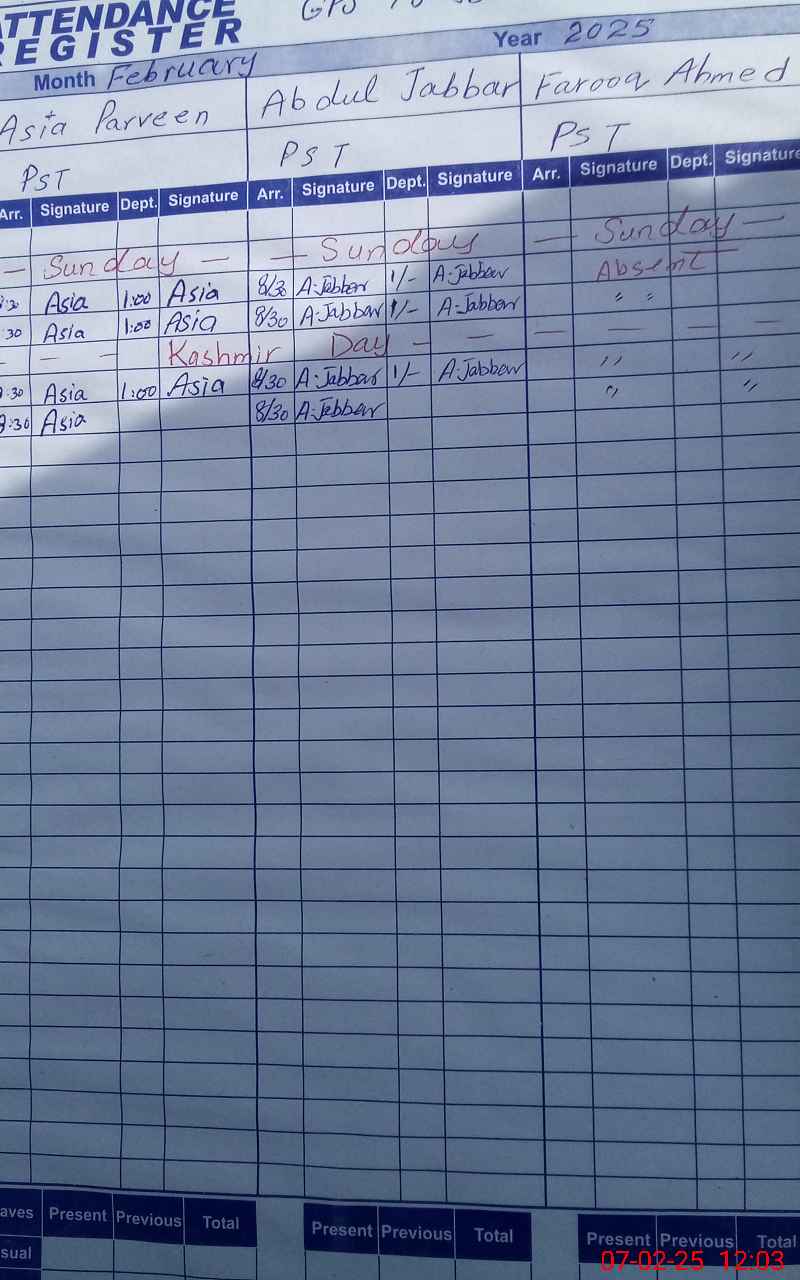 ATTENDANCE
REGISTER
Month February Year 2025
Asia Parveen Abdul Jabbar Farooq Ahmed
PST PST PST
Arr. Signature Dept. Signature Arr. Signature Dept. Signature Arr. Signature Dept. Signature
— Sunday — — Sunday — Sunday —
Asia 1:00 Asia 8/30 A.Jabbar 1/- A.Jabbar Absent
:30 Asia 1:00 Asia 8/30 A.Jabbar 1/- A.Jabbar " "
— — — Kashmir Day — — — — —
8:30 Asia 1:00 Asia 8/30 A.Jabbar 1/- A.Jabbar " "
8:30 Asia 8/30 A.Jabbar " "
aves Present Previous Total Present Previous Total Present Previous Total
sual
07-02-25 12:03